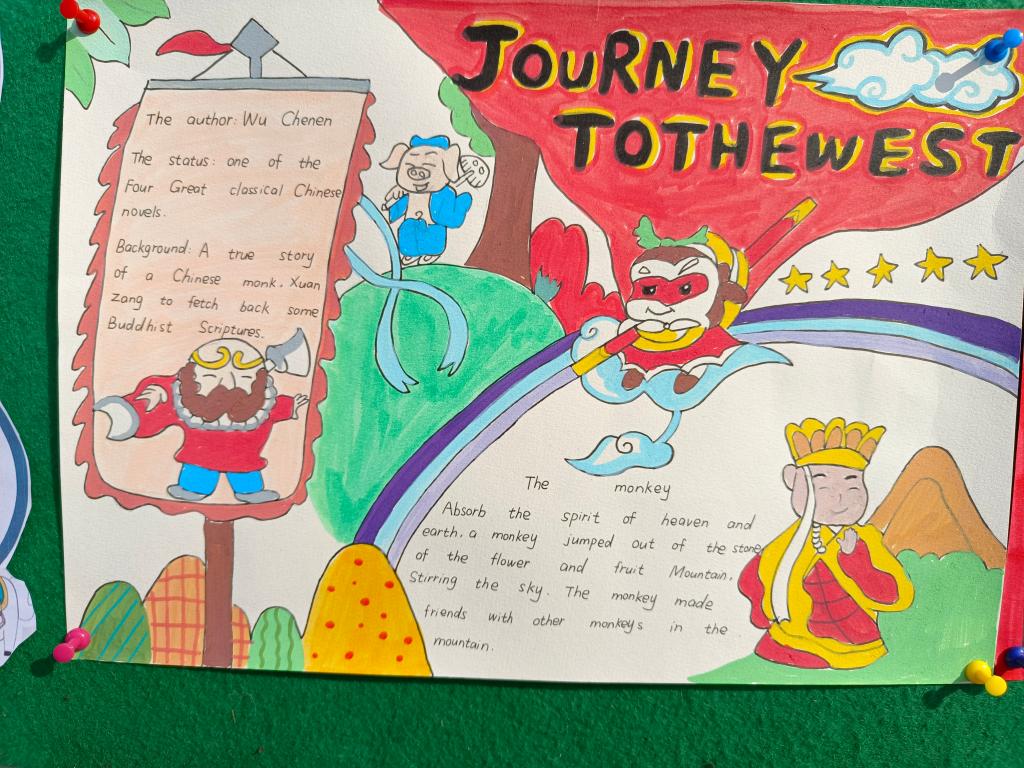 JOURNEY
TOTHEWEST
The author: Wu Chenen
The status: one of the
Four Great classical Chinese
novels.
Background: A true story
of a Chinese monk. Xuan
Zang to fetch back some
Buddhist Scriptures.
The monkey
Absorb the spirit of heaven and
earth. a monkey jumped out of the stone
of the flower and fruit Mountain.
Stirring the sky. The monkey made
friends with other monkeys in the
mountain.